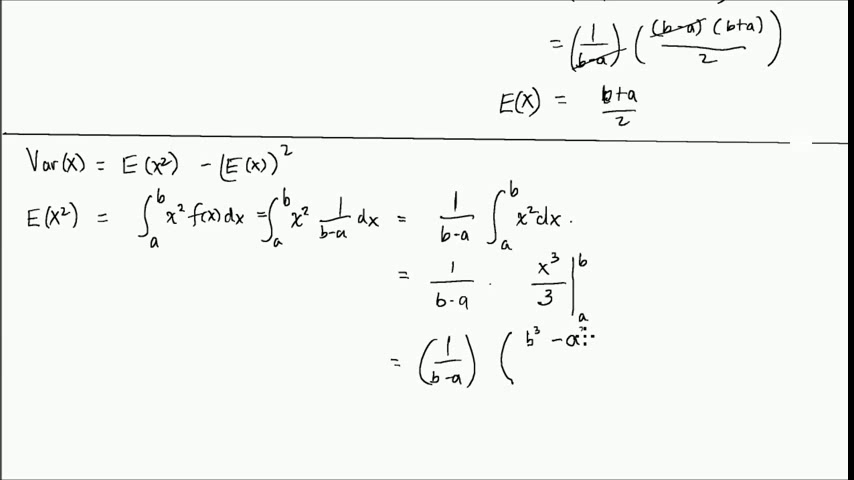 = (1/(b-a)) ((b-a)(b+a)/2)
E(X) = (b+a)/2
Var(X) = E(X²) - (E(X))²
E(X²) = ∫_a^b x² f(x)dx = ∫_a^b x² 1/(b-a) dx = 1/(b-a) ∫_a^b x² dx.
= 1/(b-a) · x³/3 |_a^b
= (1/(b-a)) (b³ - a